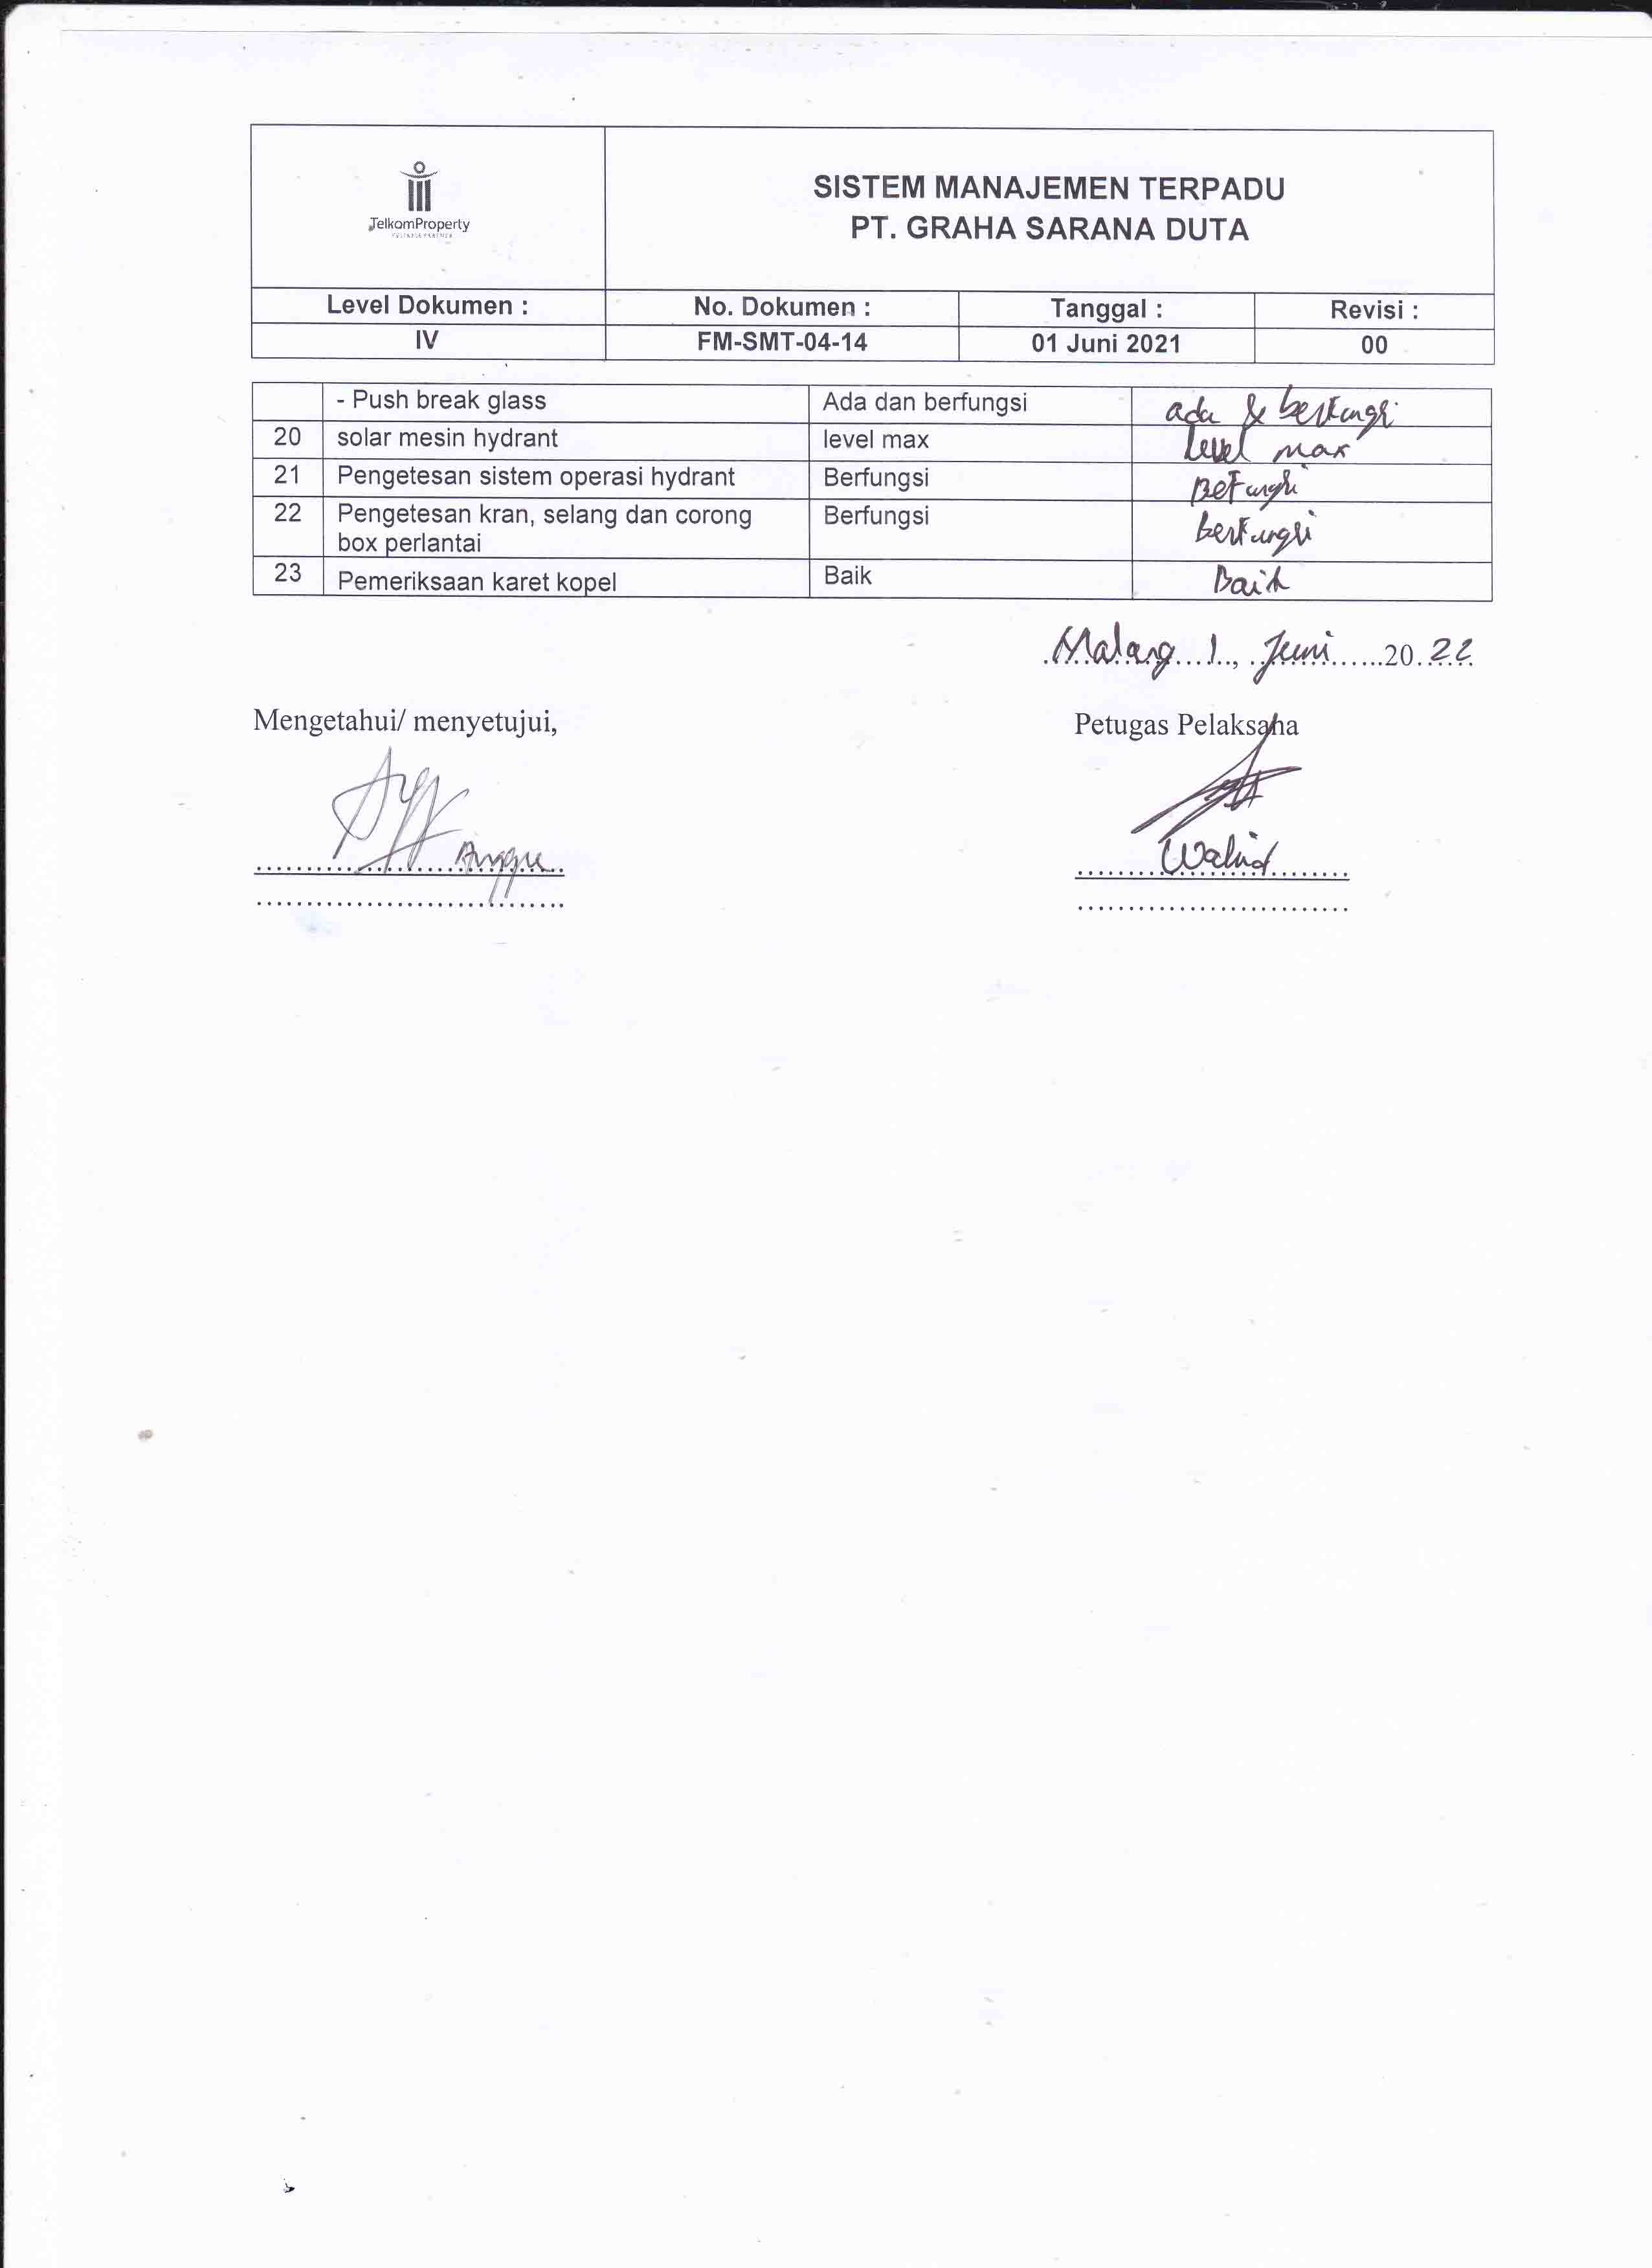 SISTEM MANAJEMEN TERPADU
PT. GRAHA SARANA DUTA
TelkomProperty
Level Dokumen : No. Dokumen : Tanggal : Revisi :
IV FM-SMT-04-14 01 Juni 2021 00
- Push break glass Ada dan berfungsi ada & berfungsi
20 solar mesin hydrant level max level max
21 Pengetesan sistem operasi hydrant Berfungsi Befungsi
22 Pengetesan kran, selang dan corong Berfungsi berfungsi
box perlantai
23 Pemeriksaan karet kopel Baik Baik
Malang 1, Juni 2022
Mengetahui/ menyetujui, Petugas Pelaksana
Wahid